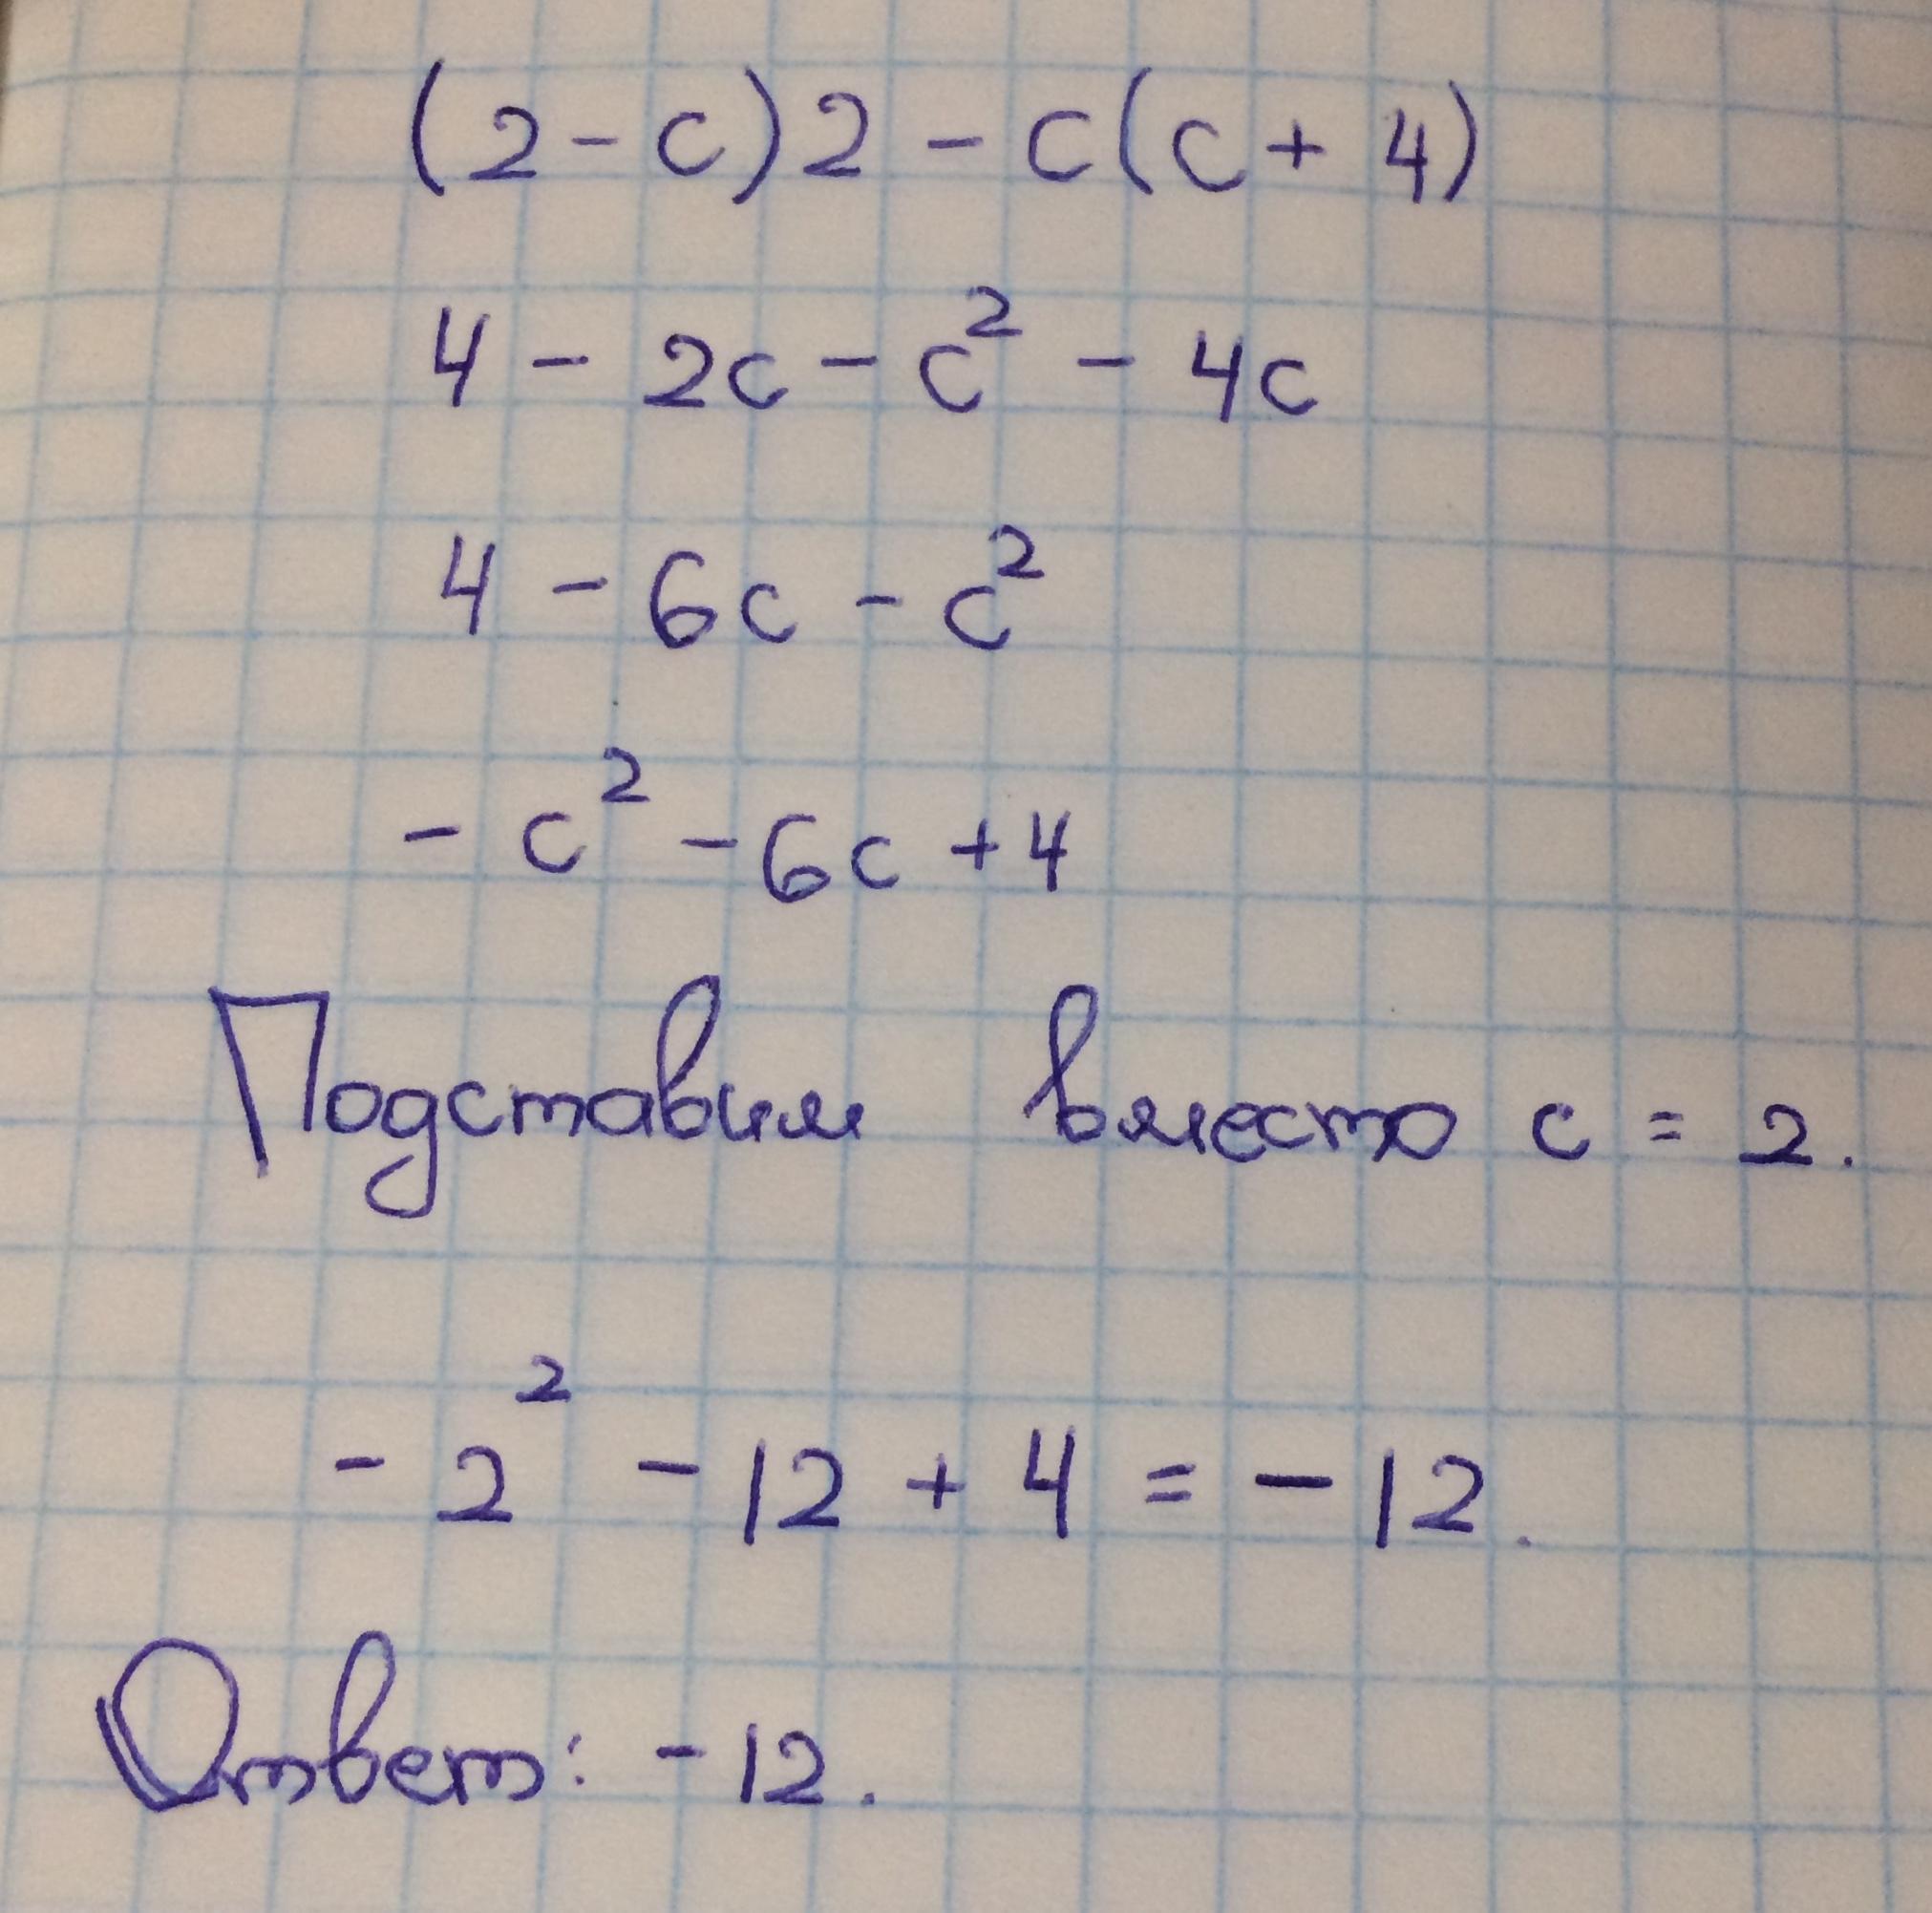 (2-c)2 - c(c+ 4)
4 - 2c - c² - 4c
4 - 6c - c²
- c² - 6c + 4
Подставим вместо c = 2.
- 2² - 12 + 4 = - 12.
Ответ: - 12.